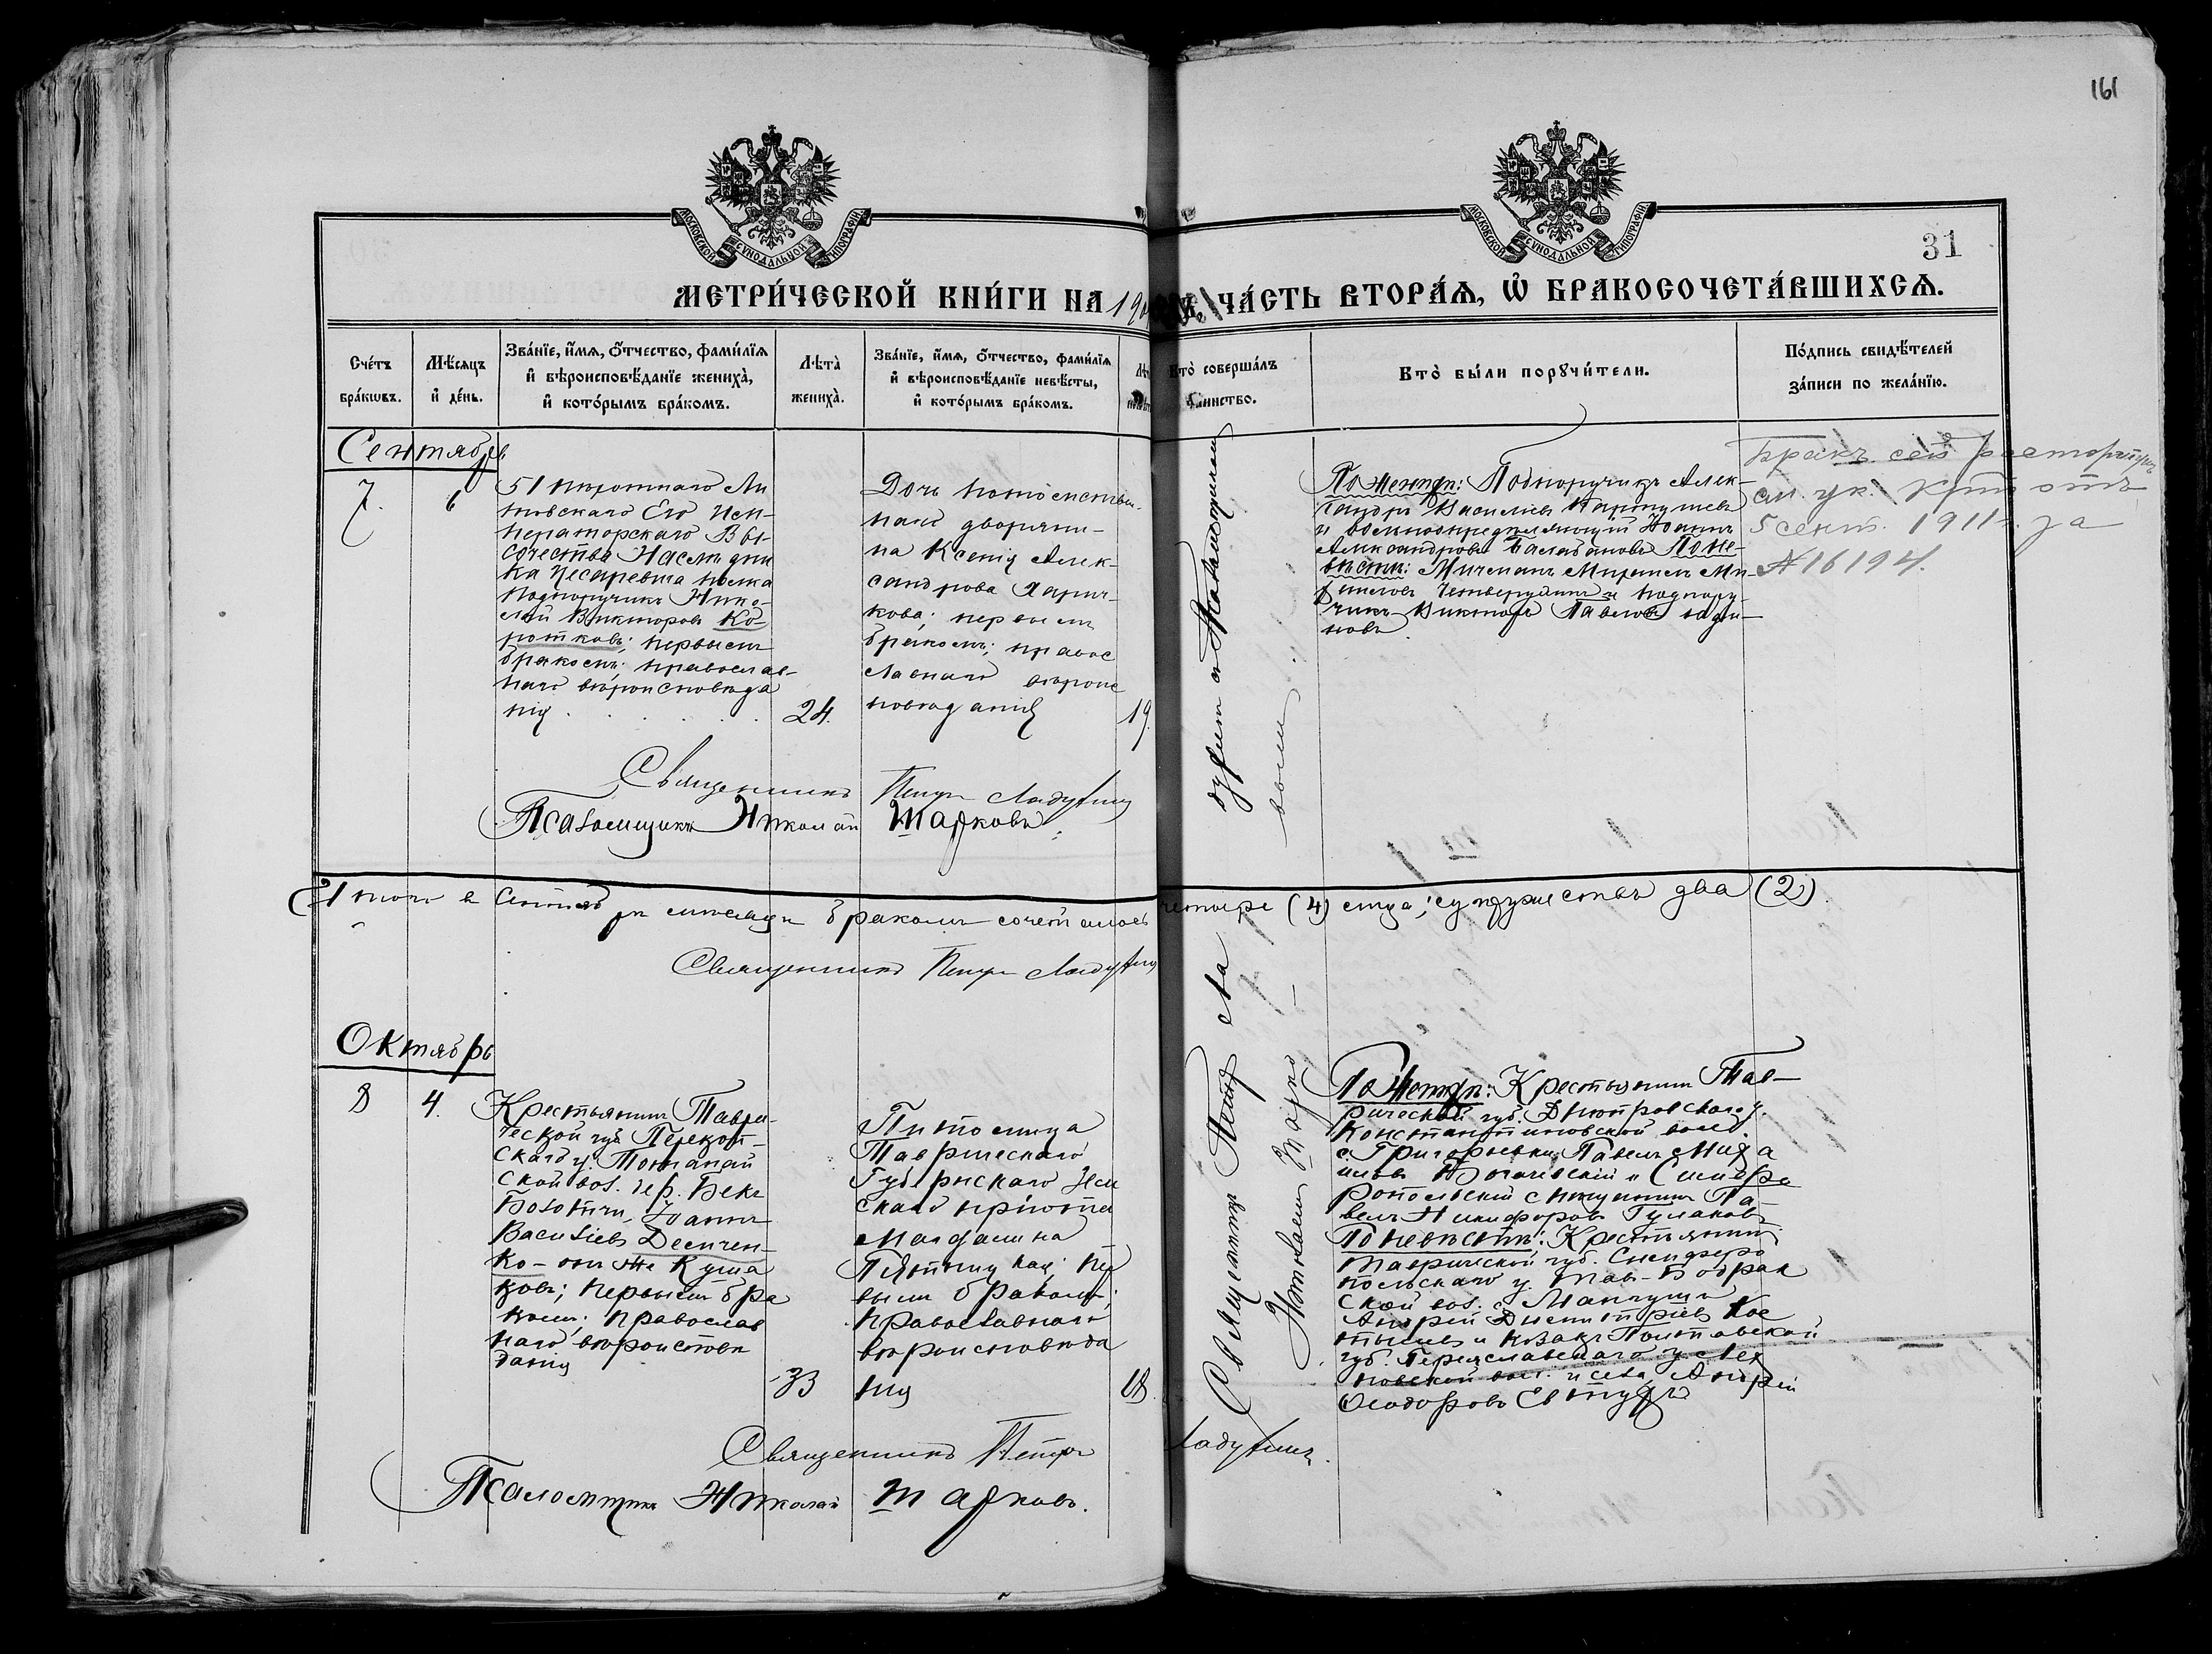 161
МОСКОВСКОЙ СѴНОДАЛЬНОЙ ТИПОГРАФІИ
МОСКОВСКОЙ СѴНОДАЛЬНОЙ ТИПОГРАФІИ
31
МЕТРИ́ЧЕСКОЙ КНИ́ГИ НА 190 ЧА́СТЬ ВТОРА́Ѧ, Ѽ БРАКОСОЧЕТА́ВШИХСѦ.
Сче́тъ бра́кѡвъ.
Мѣ́сѧцъ и҆ де́нь.
Зва́нїе, и҆́мѧ, ѻ҆́тчество, фами́лїѧ и҆ вѣроисповѣ́данїе жениха̀, и҆ кото́рымъ бра́комъ.
Лѣта̀ жениха̀.
Зва́нїе, и҆́мѧ, ѻ҆́тчество, фами́лїѧ и҆ вѣроисповѣ́данїе невѣ́сты, и҆ кото́рымъ бра́комъ.
Кто̀ соверша́лъ таинство.
Кто̀ бы́ли порꙋчи́тели.
По́дпись свидѣ́телей за́писи по жела́нїю.
Сентябрь
7.
6
51 пѣхотнаго Ли
товскаго Его Им-
ператорскаго Вы-
сочества Наслѣдни
ка Цесаревича полка
подпоручикъ Нико-
лай Викторовъ Ко-
ротковъ; первымъ
бракомъ; православ-
наго вѣроисповѣда
нія
24.
Дочь потомствен-
наго дворяни-
на Ксенія Алек-
сандрова Ларич-
кова; первымъ
бракомъ; правос
лавнаго вѣроис
повѣданія
19.
По женихѣ: Подпоручикъ Алек-
сандръ Василіевъ
и вольноопредѣляющій Іоаннъ
Александровъ Балабановъ По не-
вѣстѣ: Мичманъ Михаилъ Ми-
хаиловъ Четверухинъ и подпору-
чикъ Викторъ Павловъ
новъ
Бракъ сей расторгнутъ
ук.
5 сент. 1911 г. за
№ 16194.
Священникъ Петръ Ладухинъ
Псаломщикъ Николай Марковъ.
Итого в Сентябрѣ мѣсяцѣ бракомъ сочеталось четыре (4) лица; супружествъ два (2).
Священникъ Петръ Ладухинъ
Октябрь
8
4.
Крестьянинъ Таври-
ческой губ. Перекоп-
скаго у.
ской вол. дер. Бекъ
Іоаннъ
Василіевъ Демчен-
ко- онъ же Куша
ковъ; первымъ бра
комъ; православ
наго вѣроисповѣ
данія
33
Питомица
Таврическаго
Губернскаго Зем
скаго пріюта
Магдалина
пер
вымъ бракомъ;
православнаго
вѣроисповѣда
нія
18.
Священникъ Петръ Ла
Николаемъ Марко
По женихѣ: Крестьянинъ Тав-
рической губ. Днѣпровскаго у.
Константиновской вол.
с. Григорьевки Павелъ Миха
иловъ и Симфе
ропольскій мѣщанинъ Па-
велъ Никифоровъ Гулаковъ
По невѣстѣ: Крестьянинъ
Таврической губ. Симферо
польскаго у. Тав-Бодрак
ской вол. с. Мангушъ
Андрей Димитріевъ Кос
тылевъ и козакъ Полтавской
губ. Переяславскаго у.
вол. и села Андрей
Ѳеодоровъ Евтухъ
Священникъ Петръ Ладухинъ.
Псаломщикъ Николай Марковъ.